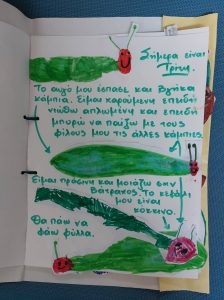 Σήμερα είναι
Τρίτη.
Το αυγό μου έσπασε και βγήκα
κάμπια. Είμαι χαρούμενη επειδή
νιώθω απλωμένη και επειδή
μπορώ να παίξω με τους
φίλους μου τις άλλες κάμπιες.
Είμαι πράσινη και μοιάζω σαν
βάτραχος. Το κεφάλι
μου είναι
κόκκινο.
Θα πάω να
φάω φύλλα.